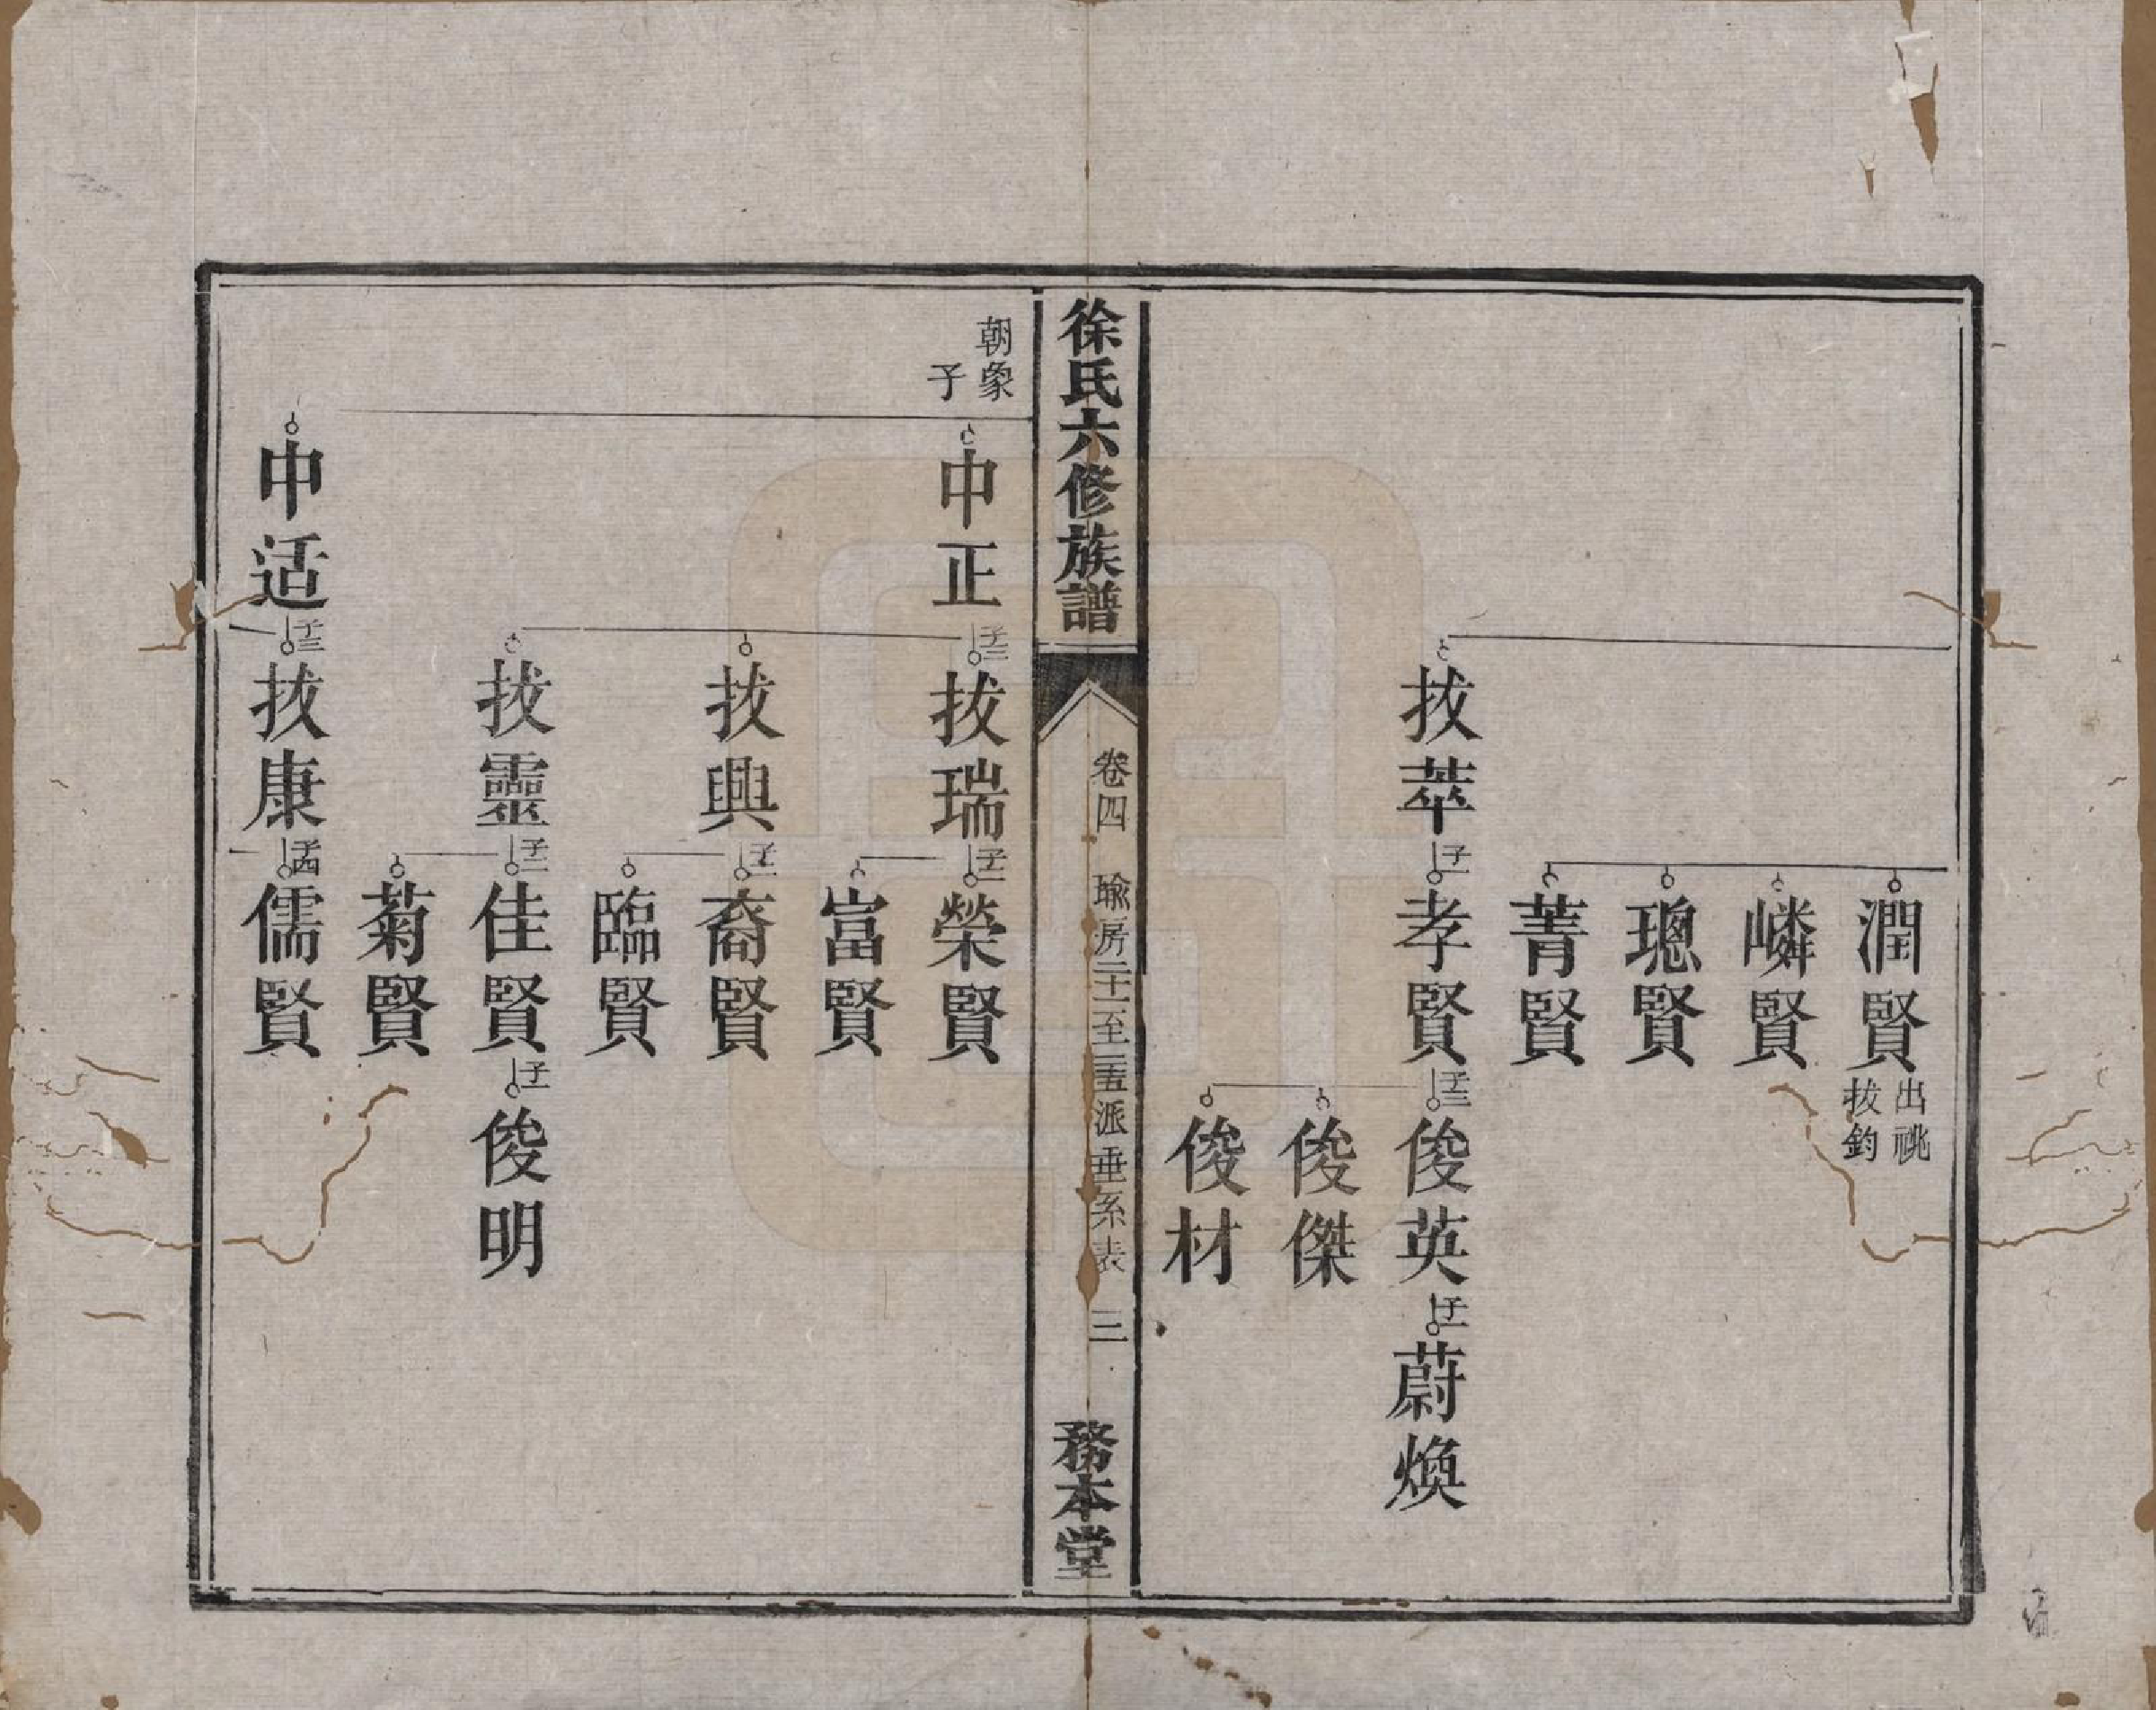 潤賢 出祧拔鈞
嶙賢
璁賢
菁賢
拔萃 子一 孝賢 子三 俊英 子一 蔚煥
俊傑
俊材
徐氏六修族譜 卷四 瑜房二十一至二十五派垂系表 三 務本堂
朝象子
中正 子三 拔瑞 子二 榮賢
富賢
拔興 子二 裔賢
臨賢
拔靈 子二 佳賢 子一 俊明
菊賢
中适 子三 拔康 子四 儒賢